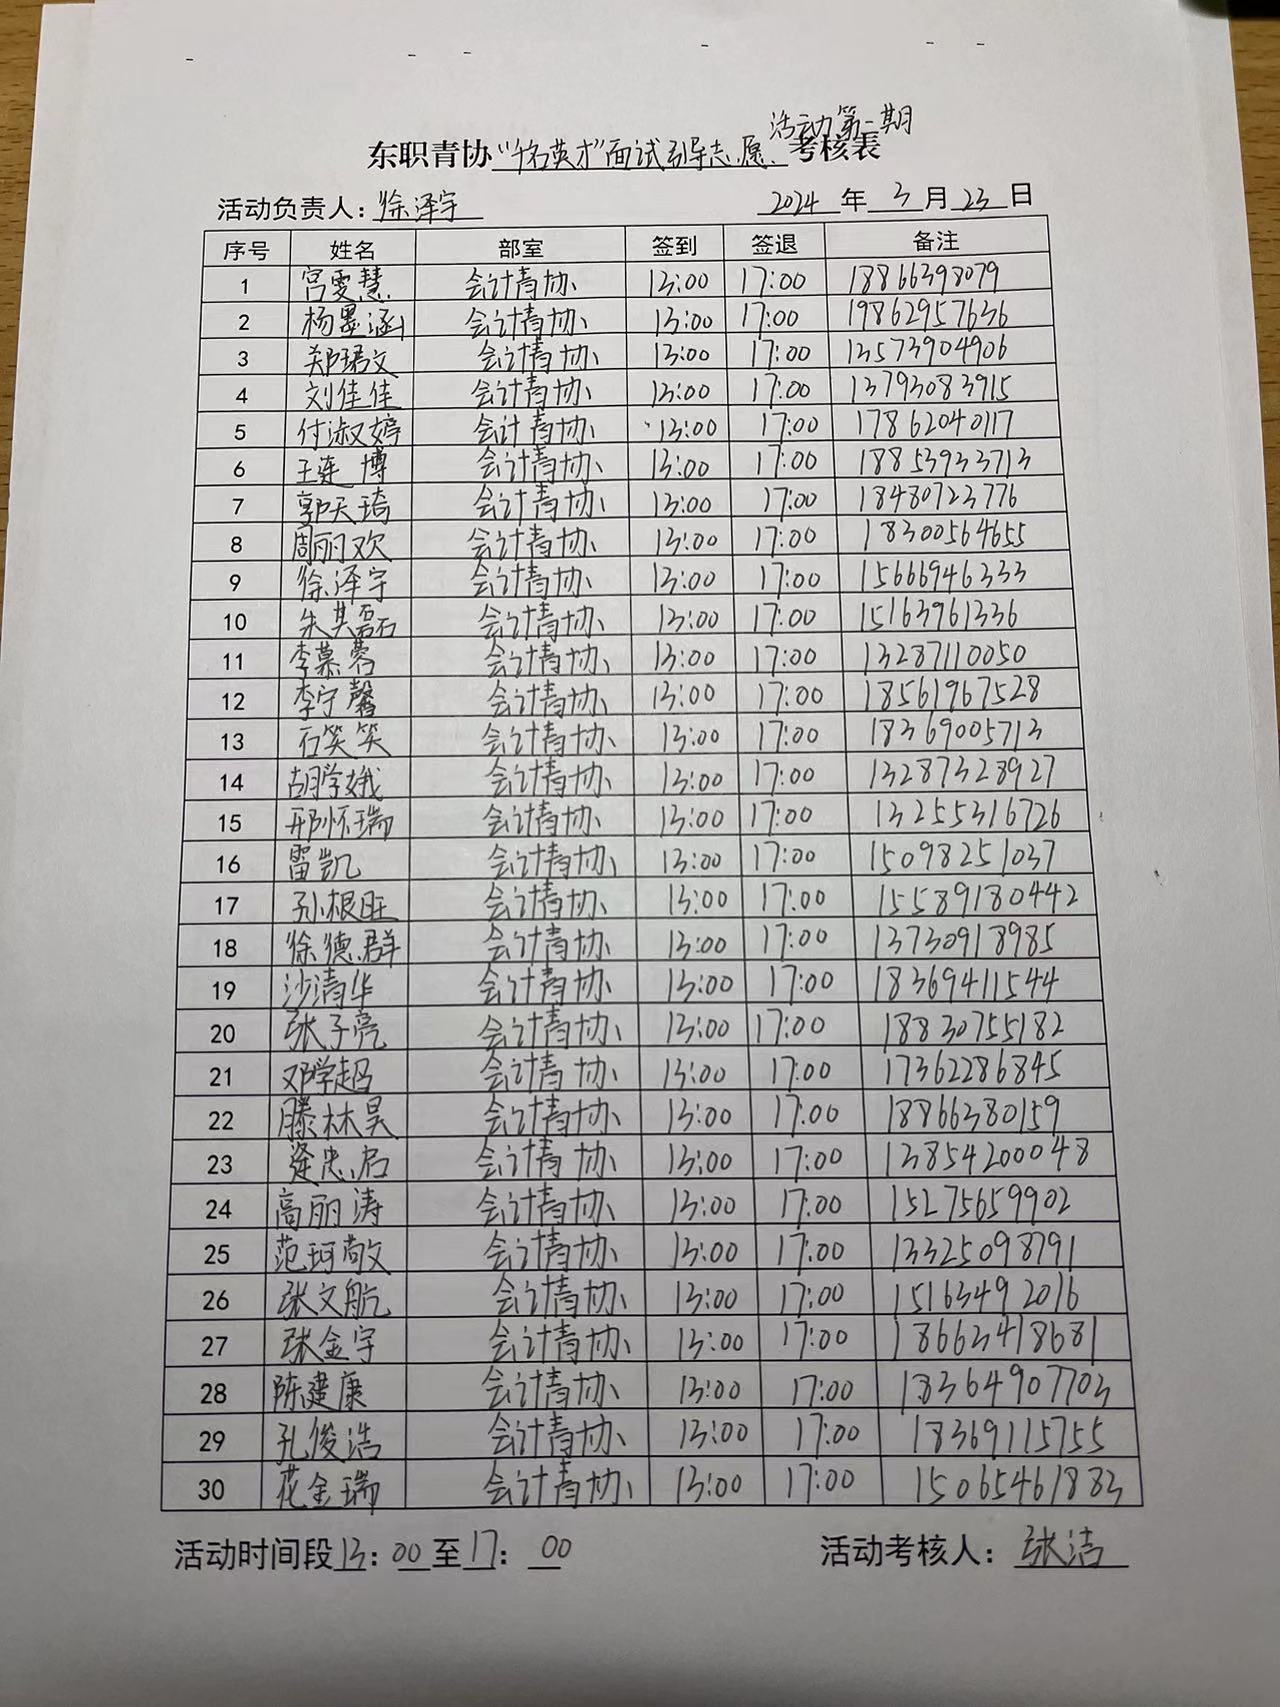 活动第一期
东职青协“千名英才”面试引导志愿考核表
活动负责人：徐泽宇 2024年3月23日
序号 姓名 部室 签到 签退 备注
1 宫雯慧 会计青协 13:00 17:00 18866398079
2 杨墨涵 会计青协 13:00 17:00 19862957636
3 郑珺文 会计青协 13:00 17:00 13573904906
4 刘佳佳 会计青协 13:00 17:00 13793083915
5 付淑婷 会计青协 13:00 17:00 17862040117
6 王连博 会计青协 13:00 17:00 18853933713
7 郭天琦 会计青协 13:00 17:00 18480723776
8 周丽欢 会计青协 13:00 17:00 18300564655
9 徐泽宇 会计青协 13:00 17:00 15666946333
10 朱其磊 会计青协 13:00 17:00 15163961336
11 李慕蓉 会计青协 13:00 17:00 13287110050
12 李宁馨 会计青协 13:00 17:00 18561967528
13 石笑笑 会计青协 13:00 17:00 18369005713
14 胡学娥 会计青协 13:00 17:00 13287328927
15 邢怀瑞 会计青协 13:00 17:00 13255316726
16 雷凯 会计青协 13:00 17:00 15098251037
17 孙根旺 会计青协 13:00 17:00 15589180442
18 徐德群 会计青协 13:00 17:00 13730918985
19 沙清华 会计青协 13:00 17:00 18369411544
20 张子亮 会计青协 13:00 17:00 18830755182
21 邓学超 会计青协 13:00 17:00 17362286845
22 滕林昊 会计青协 13:00 17:00 18866380159
23 逄忠启 会计青协 13:00 17:00 13854200048
24 高丽涛 会计青协 13:00 17:00 15275659902
25 范珂敬 会计青协 13:00 17:00 13325098791
26 张文航 会计青协 13:00 17:00 15163492016
27 张金宇 会计青协 13:00 17:00 18663418681
28 陈建康 会计青协 13:00 17:00 18364907703
29 孔俊浩 会计青协 13:00 17:00 18369115755
30 花金瑞 会计青协 13:00 17:00 15065461883
活动时间段13：00至17：00 活动考核人：张洁